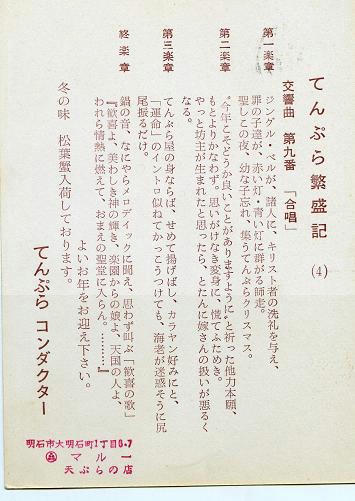 てんぷら繁盛記 (4)
交響曲 第九番 「合唱」
第一楽章
ジングル・ベルが、諸人に、キリスト者の洗礼を与え、
罪の子達が、赤い灯・青い灯に群がる師走。
聖しこの夜、幼な子忘れ、集うてんぷらクリスマス。
第二楽章
“今年こそどうか良いことがありますように”と祈った他力本願、
もとよりかなわず。思いがけなき変身に、慌てふためき。
やっと坊主が生まれたと思ったら、とたんに嫁さんの扱いが悪るく
なる。
第三楽章
てんぷら屋の身ならば、せめて揚げばし、カラヤン好みにと、
「運命」のイントロ似ねてかっこうつけても、海老が迷惑そうに尻
尾振るだけ。
終楽章
鍋の音、なにやらメロデイックに聞え、思わず叫ぶ「歓喜の歌」
『歓喜よ、美わしき神の輝き、楽園からの娘よ、天国の人よ、
われら情熱に燃えて、おまえの聖堂に入らん。………』
冬の味 松葉蟹入荷しております。
よいお年をお迎え下さい。
てんぷら コンダクター
明石市大明石町1丁目8-7
マルー
天ぷらの店